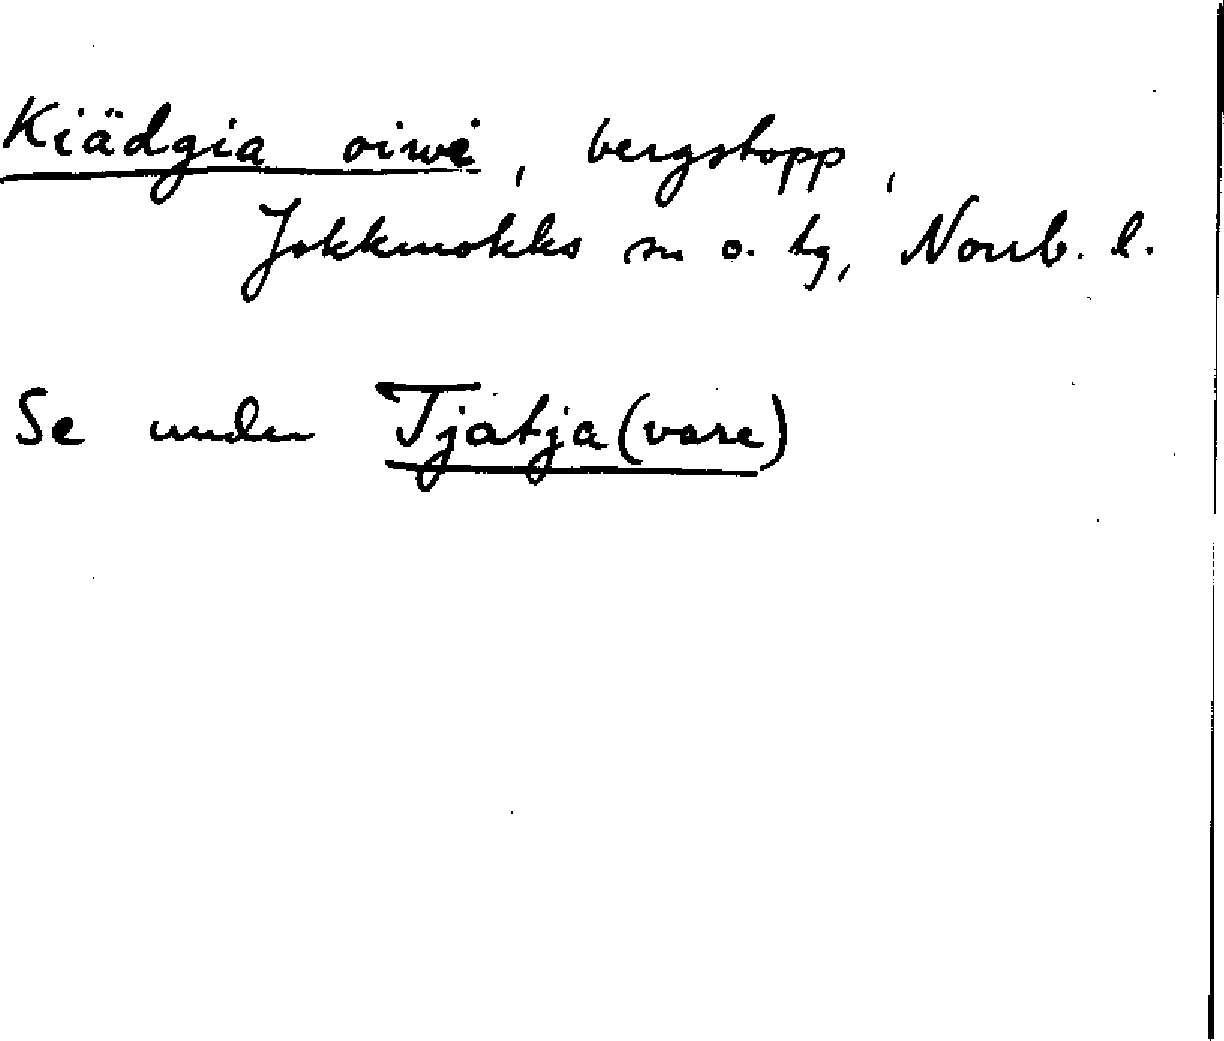 Kiädgia oiwė, bergstopp,
Jokkmokks sn o. tg, Norrb. l.
Se under Tjatja(vare)